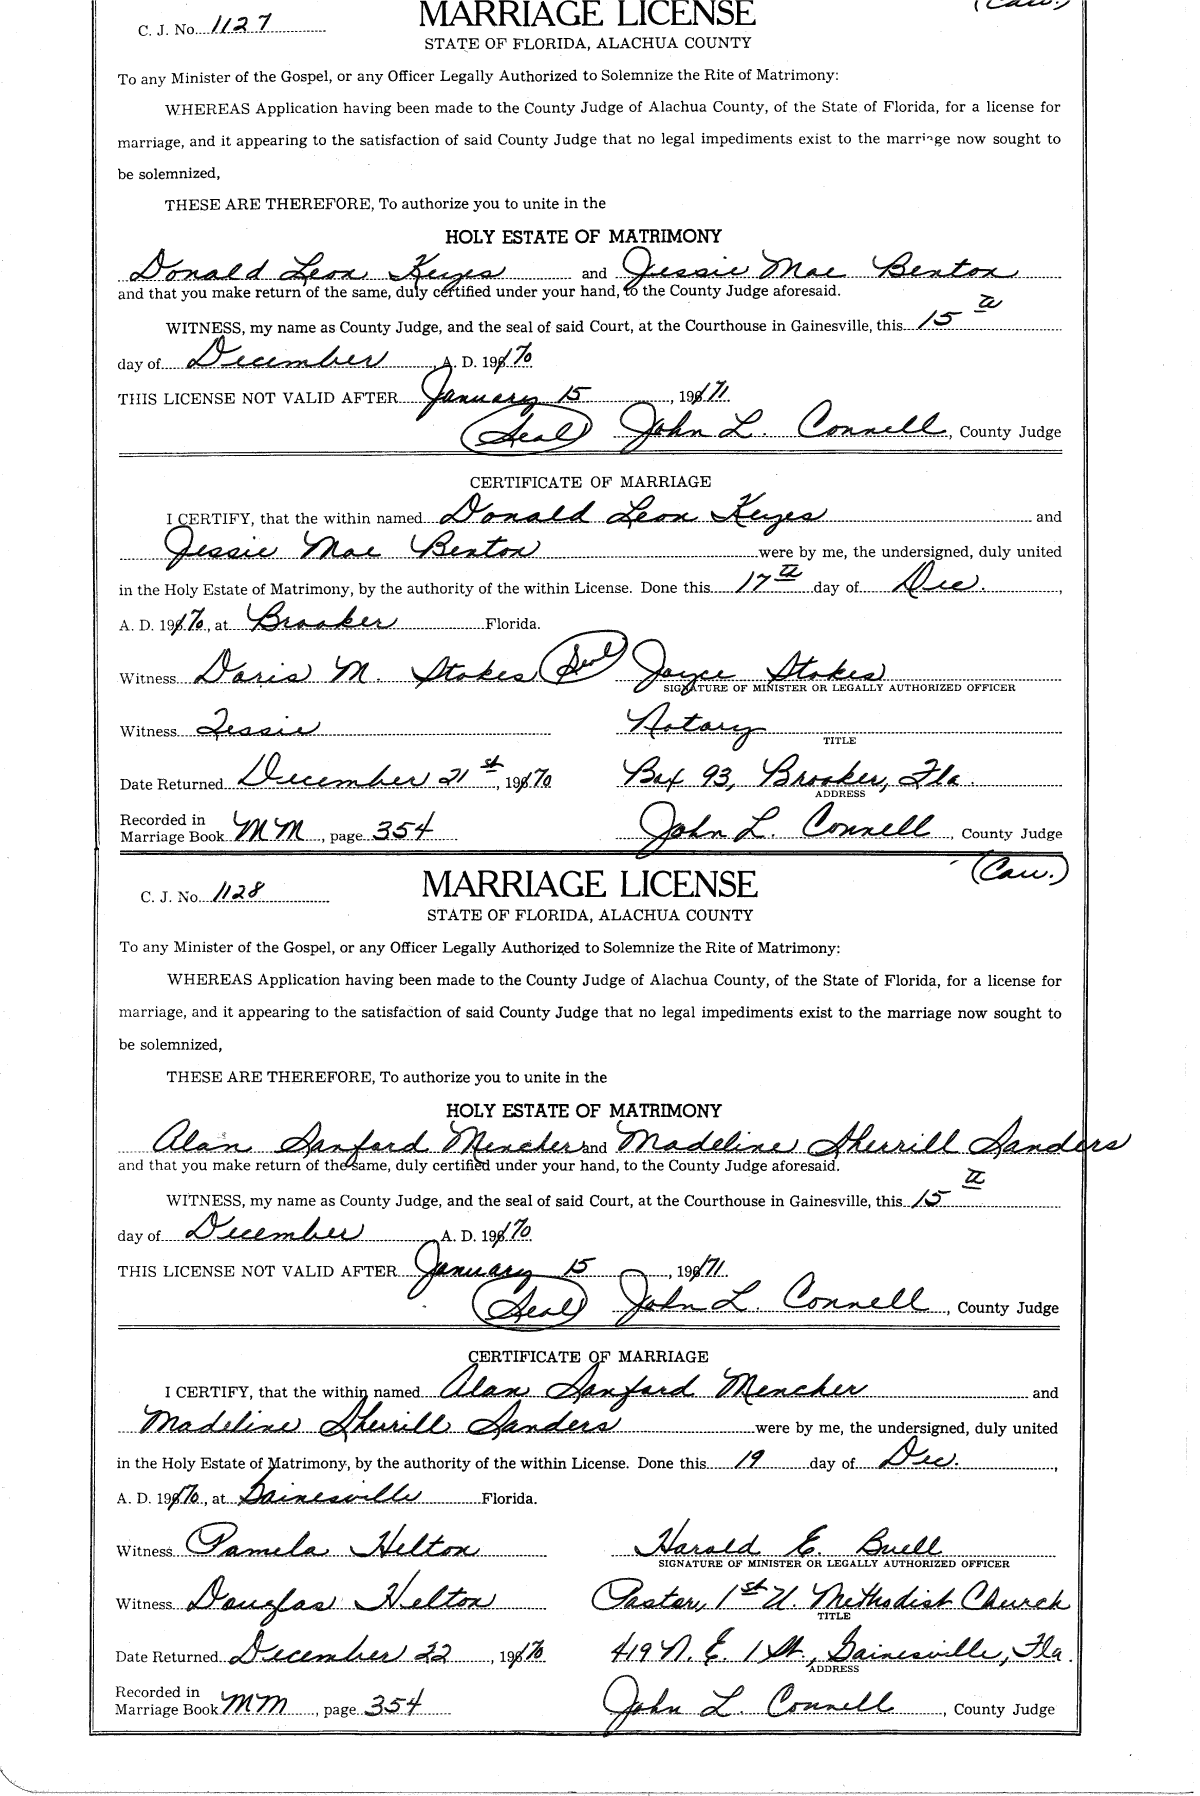 (Cau.)
C. J. No. 1127
MARRIAGE LICENSE
STATE OF FLORIDA, ALACHUA COUNTY
To any Minister of the Gospel, or any Officer Legally Authorized to Solemnize the Rite of Matrimony:
WHEREAS Application having been made to the County Judge of Alachua County, of the State of Florida, for a license for
marriage, and it appearing to the satisfaction of said County Judge that no legal impediments exist to the marriage now sought to
be solemnized,
THESE ARE THEREFORE, To authorize you to unite in the
HOLY ESTATE OF MATRIMONY
Donald Leon Keyes and Jessie Mae Benton
and that you make return of the same, duly certified under your hand, to the County Judge aforesaid.
WITNESS, my name as County Judge, and the seal of said Court, at the Courthouse in Gainesville, this 15th
day of December, A. D. 1970
THIS LICENSE NOT VALID AFTER January 15, 1971
(Seal) John L. Connell, County Judge
CERTIFICATE OF MARRIAGE
I CERTIFY, that the within named Donald Leon Keyes and
Jessie Mae Benton were by me, the undersigned, duly united
in the Holy Estate of Matrimony, by the authority of the within License. Done this 17th day of Dec.,
A. D. 1970, at Brooker Florida.
Witness Doris M. Stokes (Seal) Joyce Stokes
SIGNATURE OF MINISTER OR LEGALLY AUTHORIZED OFFICER
Witness Tessie Notary
TITLE
Date Returned December 21st, 1970 Box 93, Brooker, Fla.
ADDRESS
Recorded in
Marriage Book MM, page 354 John L. Connell, County Judge
(Cau.)
C. J. No. 1128
MARRIAGE LICENSE
STATE OF FLORIDA, ALACHUA COUNTY
To any Minister of the Gospel, or any Officer Legally Authorized to Solemnize the Rite of Matrimony:
WHEREAS Application having been made to the County Judge of Alachua County, of the State of Florida, for a license for
marriage, and it appearing to the satisfaction of said County Judge that no legal impediments exist to the marriage now sought to
be solemnized,
THESE ARE THEREFORE, To authorize you to unite in the
HOLY ESTATE OF MATRIMONY
Alan Sanford Mencher and Madeline Sherrill Sanders
and that you make return of the same, duly certified under your hand, to the County Judge aforesaid.
WITNESS, my name as County Judge, and the seal of said Court, at the Courthouse in Gainesville, this 15th
day of December A. D. 1970
THIS LICENSE NOT VALID AFTER January 15, 1971
(Seal) John L. Connell, County Judge
CERTIFICATE OF MARRIAGE
I CERTIFY, that the within named Alan Sanford Mencher and
Madeline Sherrill Sanders were by me, the undersigned, duly united
in the Holy Estate of Matrimony, by the authority of the within License. Done this 19 day of Dec.,
A. D. 1970, at Gainesville Florida.
Witness Pamela Helton Harold E. Buell
SIGNATURE OF MINISTER OR LEGALLY AUTHORIZED OFFICER
Witness Douglas Helton Pastor, 1st U. Methodist Church
TITLE
Date Returned December 22, 1970 419 N. E. 1 St., Gainesville, Fla.
ADDRESS
Recorded in
Marriage Book MM, page 354 John L. Connell, County Judge